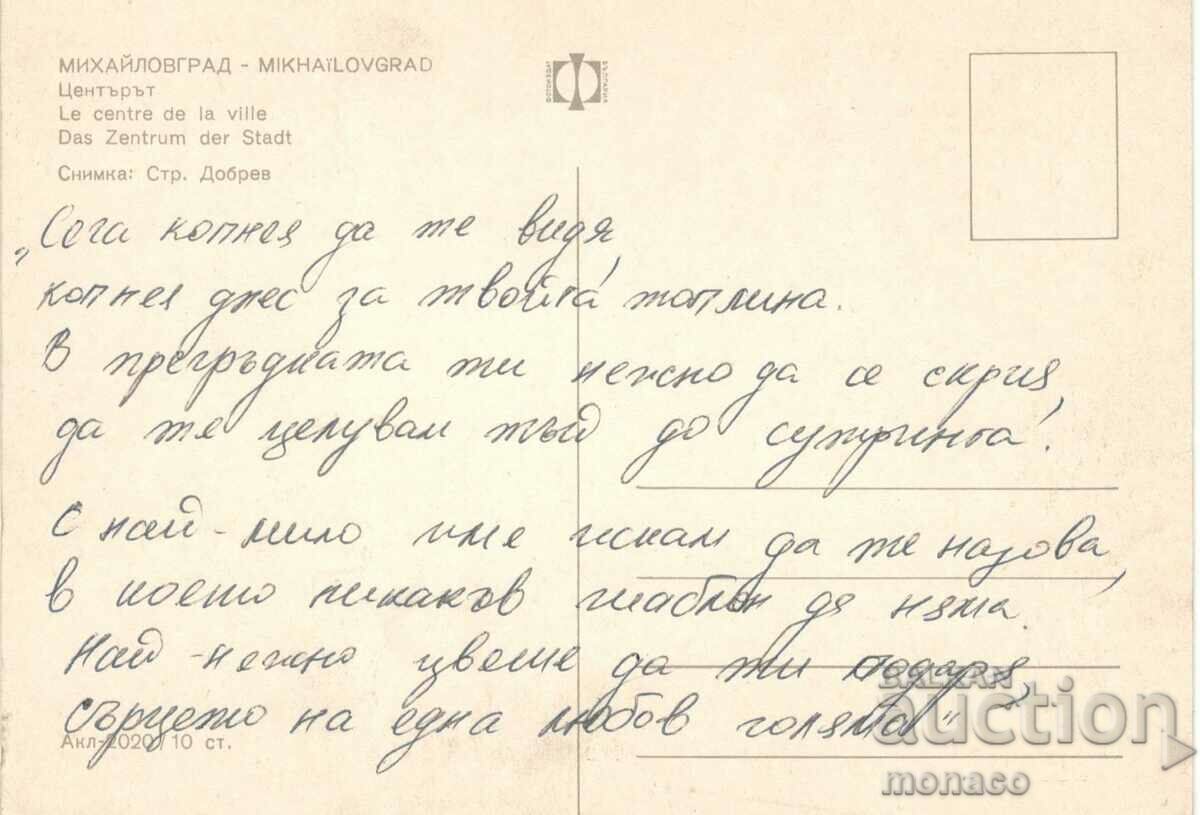 МИХАЙЛОВГРАД - MIKHAÏLOVGRAD
Центърът
Le centre de la ville
Das Zentrum der Stadt
Снимка: Стр. Добрев
ФОТОИЗДАТ БЪЛГАРИЯ
„Сега копнея да те видя,
копнея днес за твойта топлина.
В прегръдката ти нежно да се скрия,
да те целувам тъй до сутринта!
С най-мило име искам да те назова,
в което никакъв шаблон да няма.
Най-нежно цвете да ти подаря,
сърцето на една любов голяма"
Акл-2020/10 ст.
BALKAN
auction
monaco